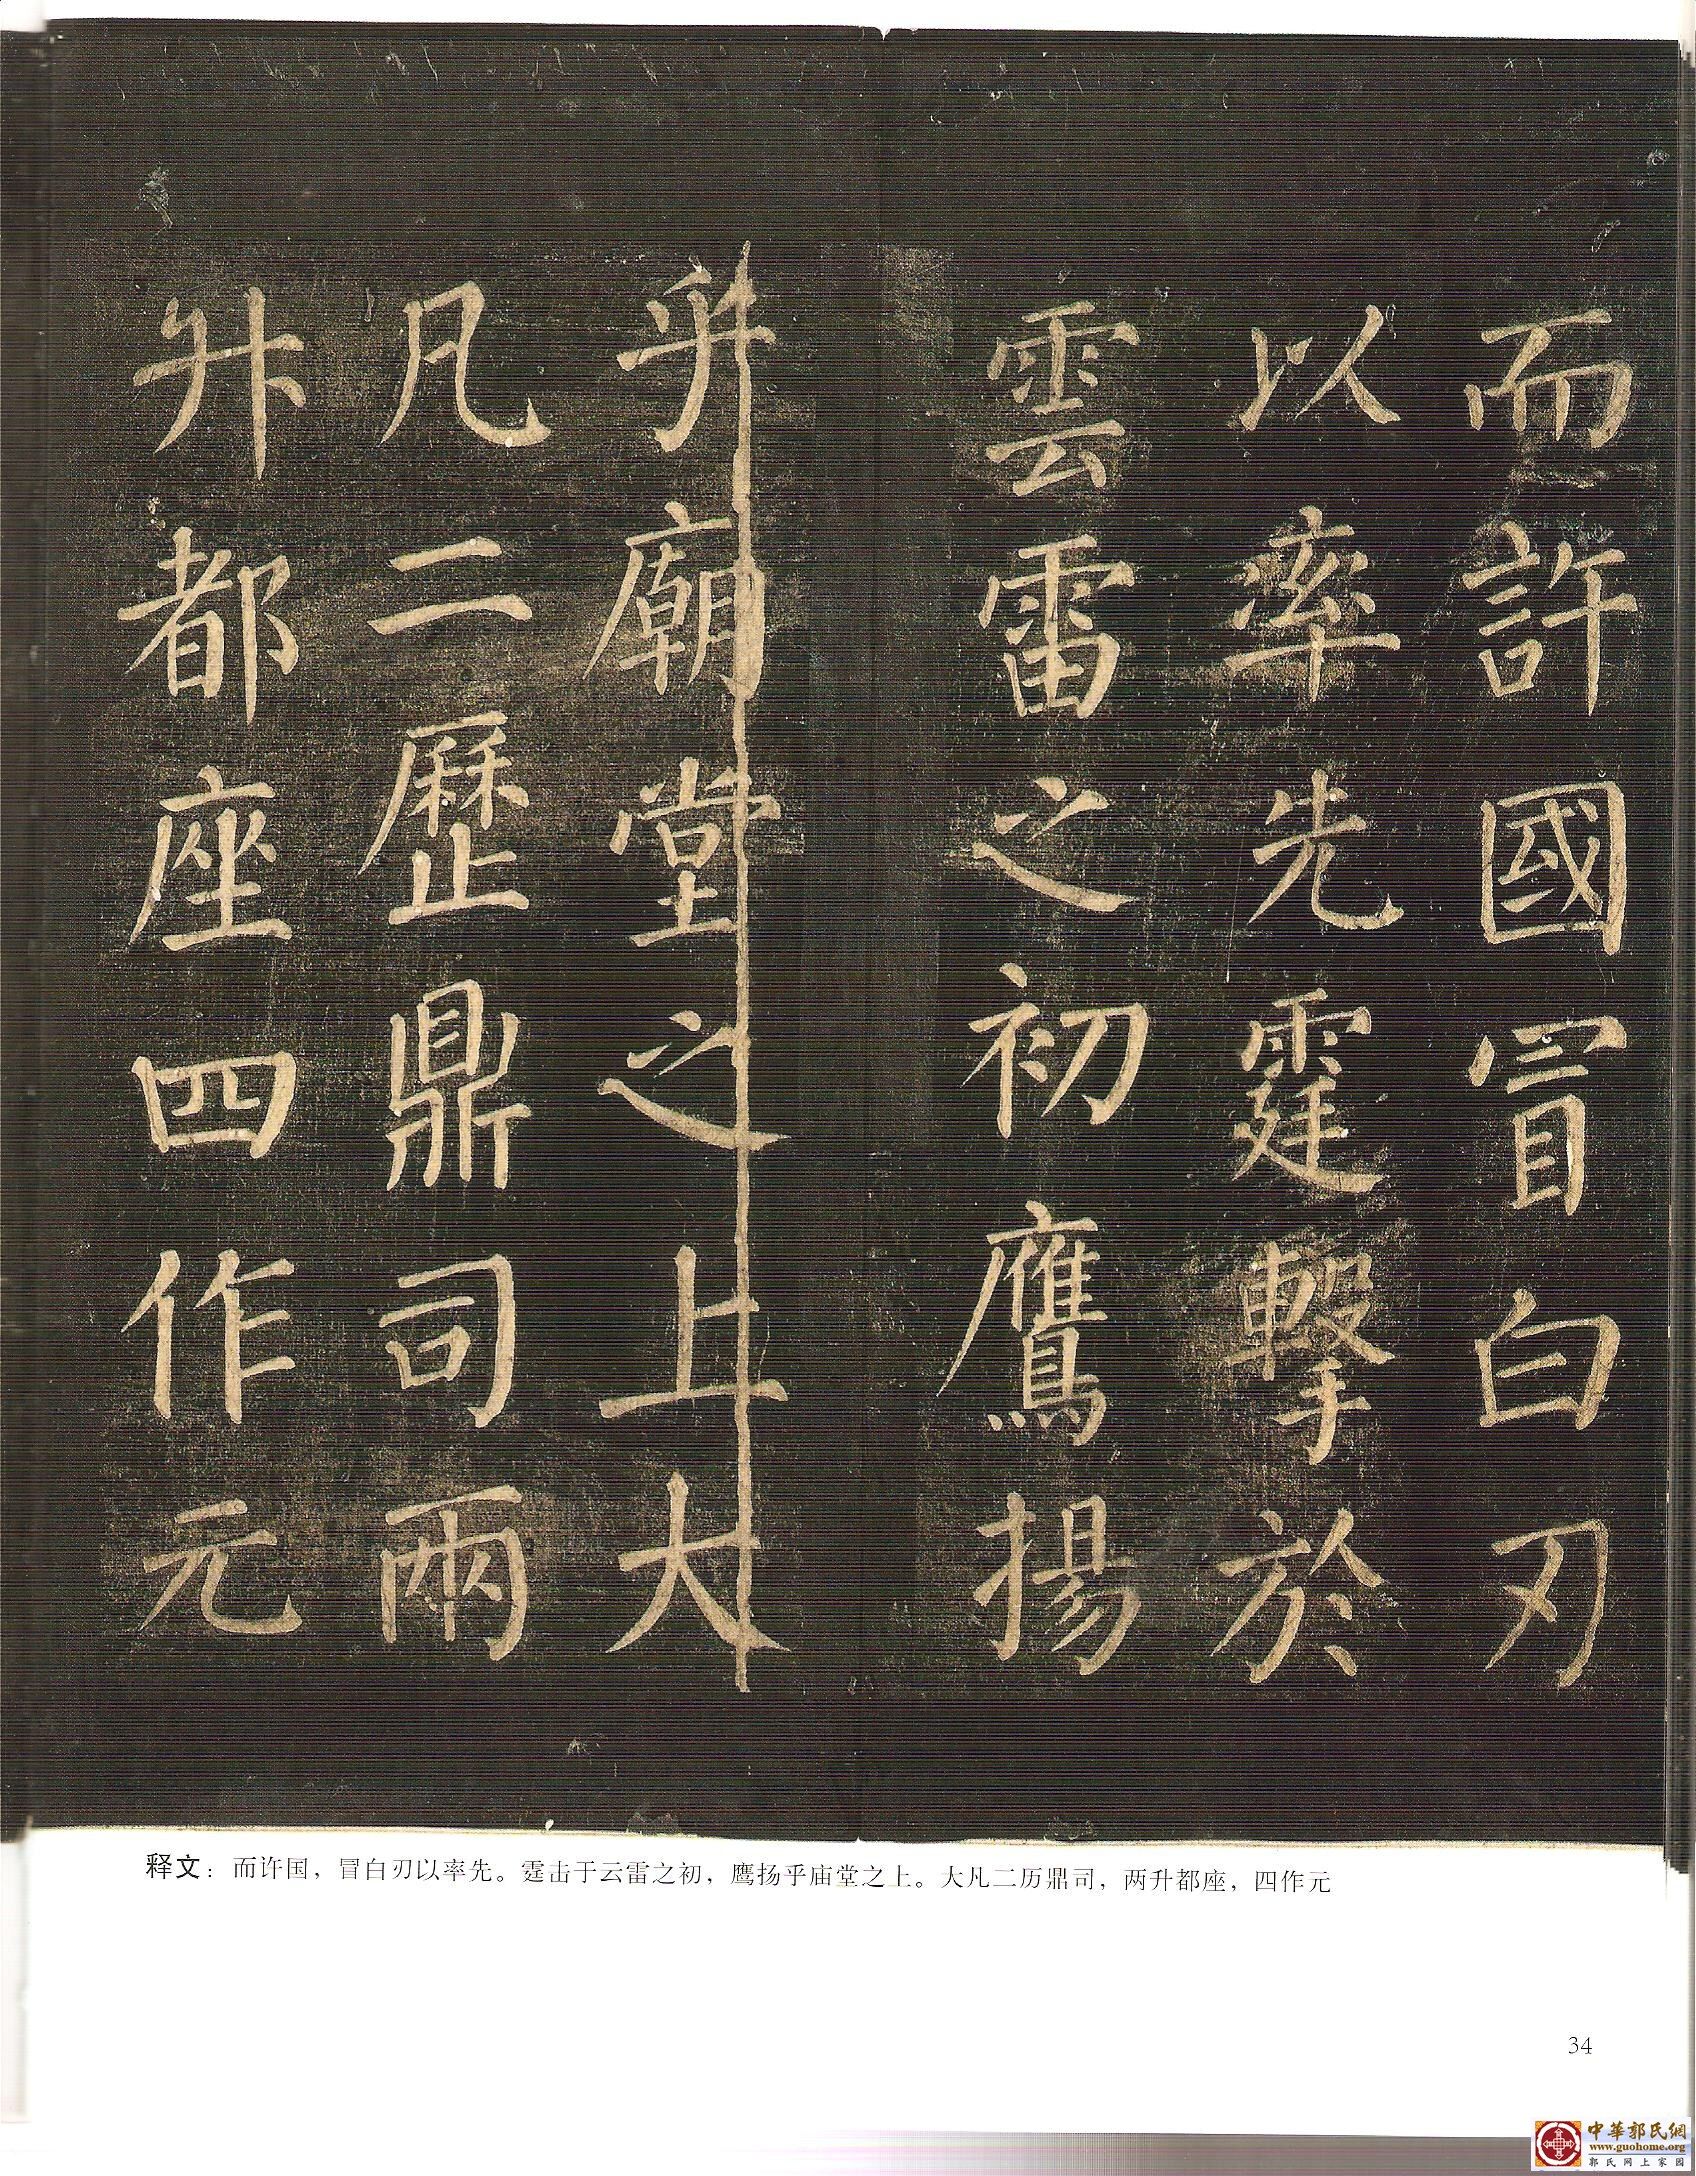 而許國冒白刃
以率先霆擊於
雲雷之初鷹揚
乎廟堂之上大
凡二歷鼎司兩
升都座四作元
释文：而许国，冒白刃以率先。霆击于云雷之初，鹰扬乎庙堂之上。大凡二历鼎司，两升都座，四作元
34
中華郭氏網
www.guohome.org
郭氏网上家园